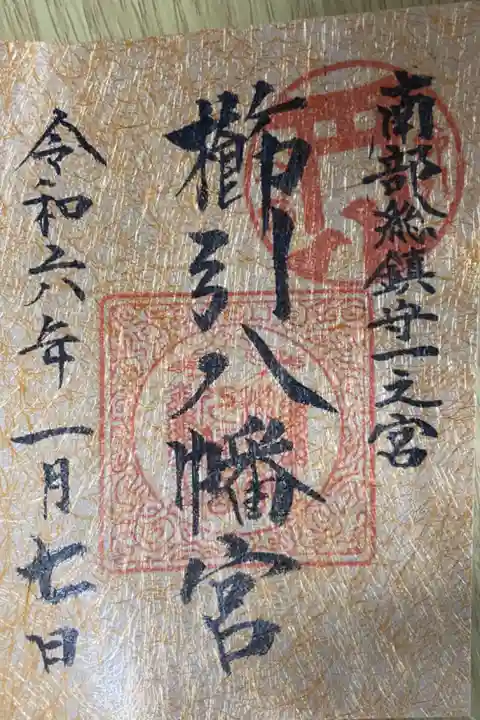 南部総鎮守一之宮
櫛引八幡宮
令和六年一月七日